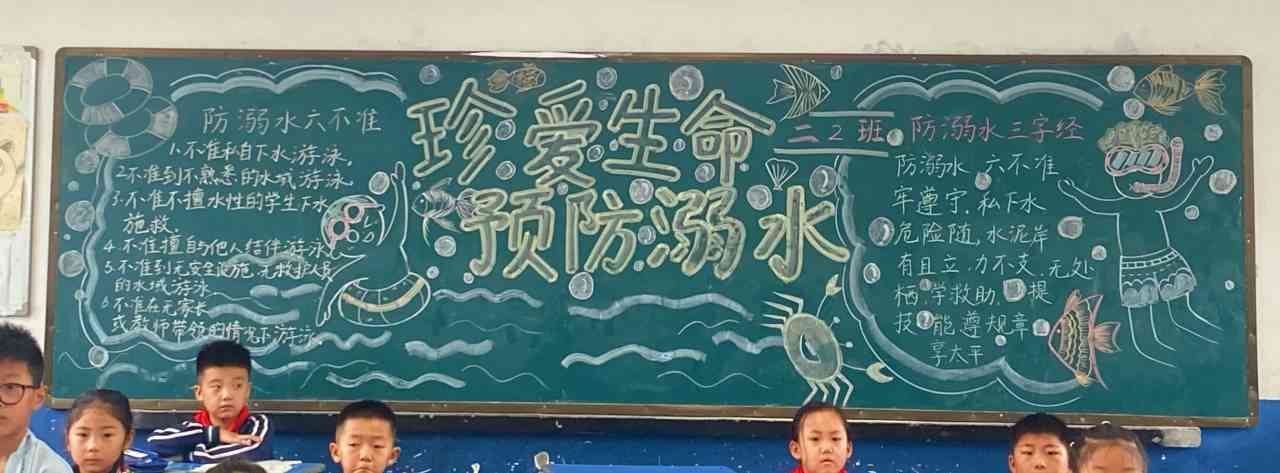 防溺水六不准
1.不准私自下水游泳,
2不准到不熟悉的水域游泳
3.不准不擅水性的学生下水
施救.
4.不准擅自与他人结伴游泳
5.不准到无安全设施,无救护人员
的水域游泳
6不准在无家长
或教师带领的情况下游泳.
珍爱生命
预防溺水
二2班
防溺水三字经
防溺水,六不准
牢遵守,私下水
危险随,水泥岸
有且立,力不支,无处
栖,学救助,提
技能遵规章
享太平